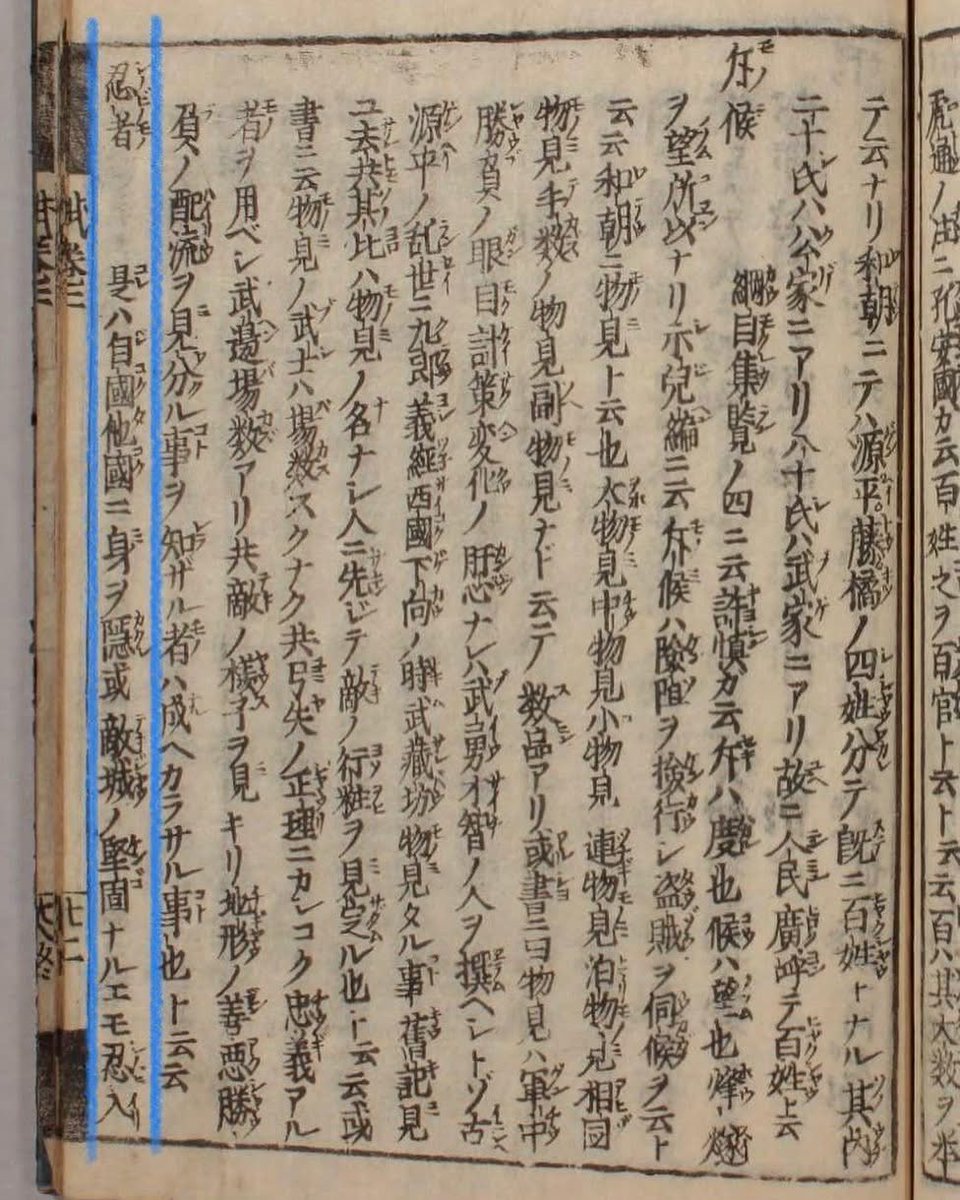 テ云ナリ和朝ニテハ源平藤橘ノ四姓分テ既ニ百姓トナル其内
二十氏ハ公家ニアリ八十氏ハ武家ニアリ故ニ人民廣呼テ百姓ト云
斥候 綱目集覧ノ四ニ云許慎カ云斥ハ度也候ハ望也烽燧
ヲ望所以ナリ示兒編ニ云斥候ハ險阻ヲ撿行シ盗賊ヲ伺候ヲ云ト
云云和朝ニ物見ト云也大物見中物見小物見連物見泊物見相図
物見手数ノ物見副物見ナド云テ数品アリ或書ニ曰物見ハ軍中
勝負ノ眼目計策変化ノ肝心ナレハ武勇才智ノ人ヲ撰ヘシトゾ古
源平ノ乱世ニ九郎義經西國下向ノ時武藏坊物見タル事舊記見
ユ去共其比ハ物見ノ名ナシ人ニ先ジテ敵ノ行粧ヲ見定ル也ト云云或
書ニ云物見ノ武士ハ場数スクナク共弓矢ノ正理ニカシコク忠義アル
者ヲ用ベシ武邊場数アリ共敵ノ様子ヲ見キリ地形ノ善悪勝
負ノ配流ヲ見分ル事ヲ知ザル者ハ成ヘカラサル事也ト云云
忍者 是ハ自國他國ニ身ヲ隠或敵城ノ堅固ナルエモ忍入